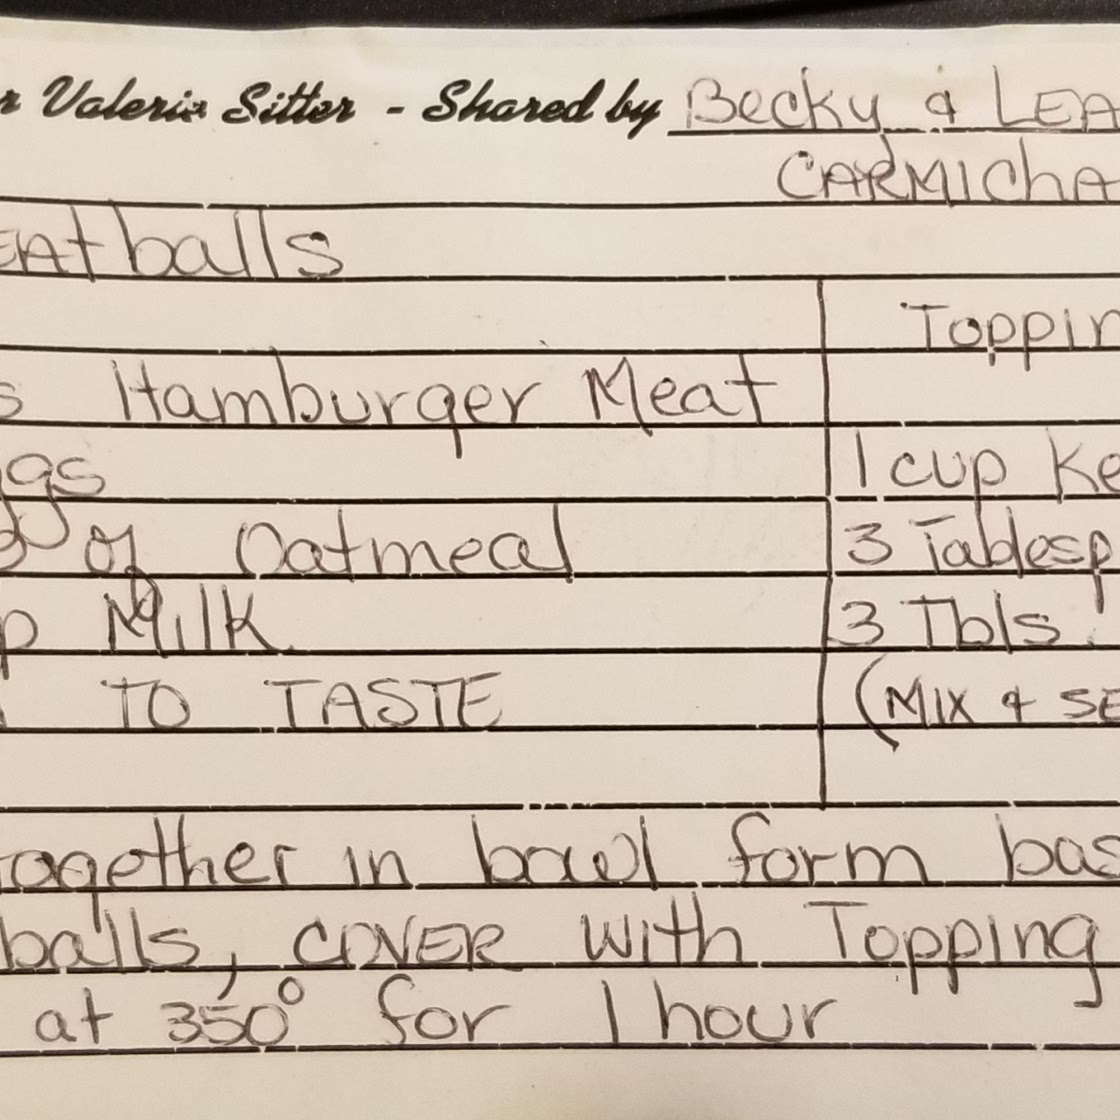 r Valerie Sitter - Shared by Becky & LEA
CARMICHA
EAtballs
Toppin
s Hamburger Meat
ggs
1 cup Ke
of Oatmeal
3 Tablesp
p Milk
3 Tbls.
TO TASTE
(MIX & SE
together in bowl form bas
balls, COVER with Topping
at 350° for 1 hour